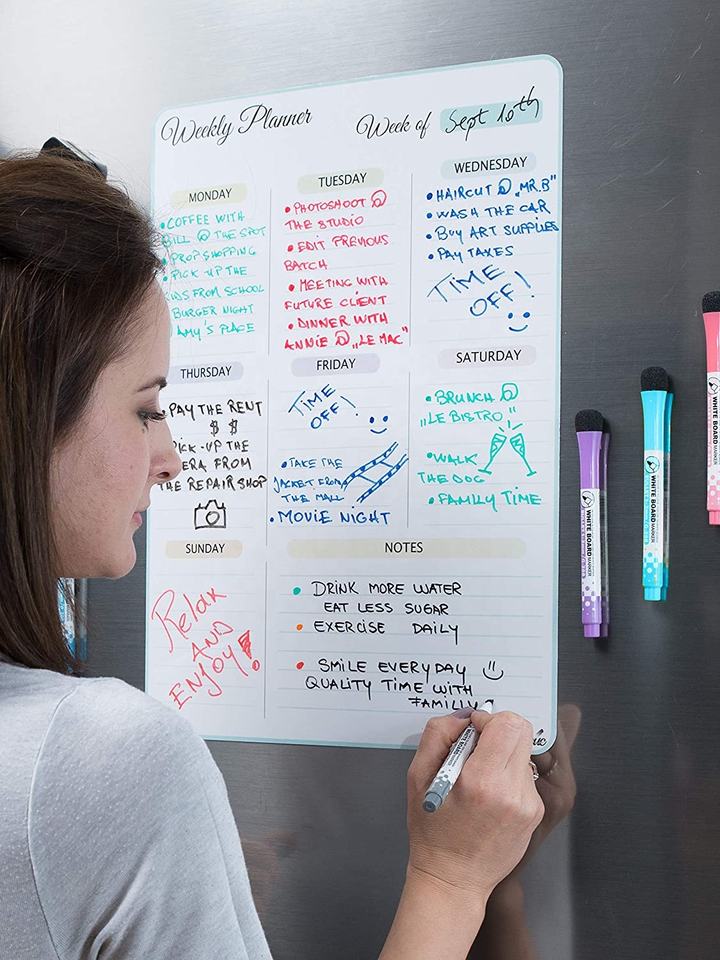 Weekly Planner
Week of Sept 10th
MONDAY
• COFFEE WITH
BILL @ THE SPOT
PROP SHOPPING
• PICK UP THE
KIDS FROM SCHOOL
BURGER NIGHT
AMY'S PLACE
TUESDAY
• PHOTOSHOOT @
THE STUDIO
• EDIT PREVIOUS
BATCH
• MEETING WITH
FUTURE CLIENT
• DINNER WITH
ANNIE @ „LE MAC"
WEDNESDAY
• HAIRCUT @ „MR.B"
• WASH THE CAR
• BUY ART SUPPLIES
• PAY TAXES
TIME
OFF!
THURSDAY
PAY THE RENT
$ $
PICK-UP THE
ERA FROM
THE REPAIR SHOP
FRIDAY
TIME
OFF!
• TAKE THE
JACKET FROM
THE MALL
• MOVIE NIGHT
SATURDAY
• BRUNCH @
„LE BISTRO"
• WALK
THE DOG
• FAMILY TIME
SUNDAY
Relax
AND
ENJOY!
NOTES
• DRINK MORE WATER
EAT LESS SUGAR
• EXERCISE DAILY
• SMILE EVERYDAY
QUALITY TIME WITH
FAMILY
WHITE BOARD MARKER
WHITE BOARD MARKER
WHITE BOARD MARKER